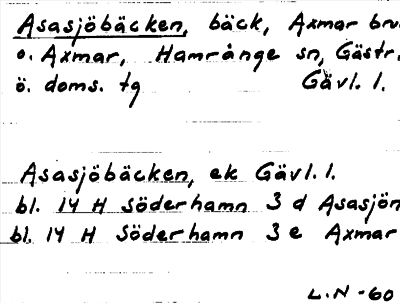 Asasjöbäcken, bäck, Axmar bru
o. Axmar, Hamrånge sn, Gästr.
ö. doms. tg Gävl. l.
Asasjöbäcken, ek Gävl. l.
bl. 14 H Söderhamn 3 d Asasjön
bl. 14 H Söderhamn 3 e Axmar
L.N -60